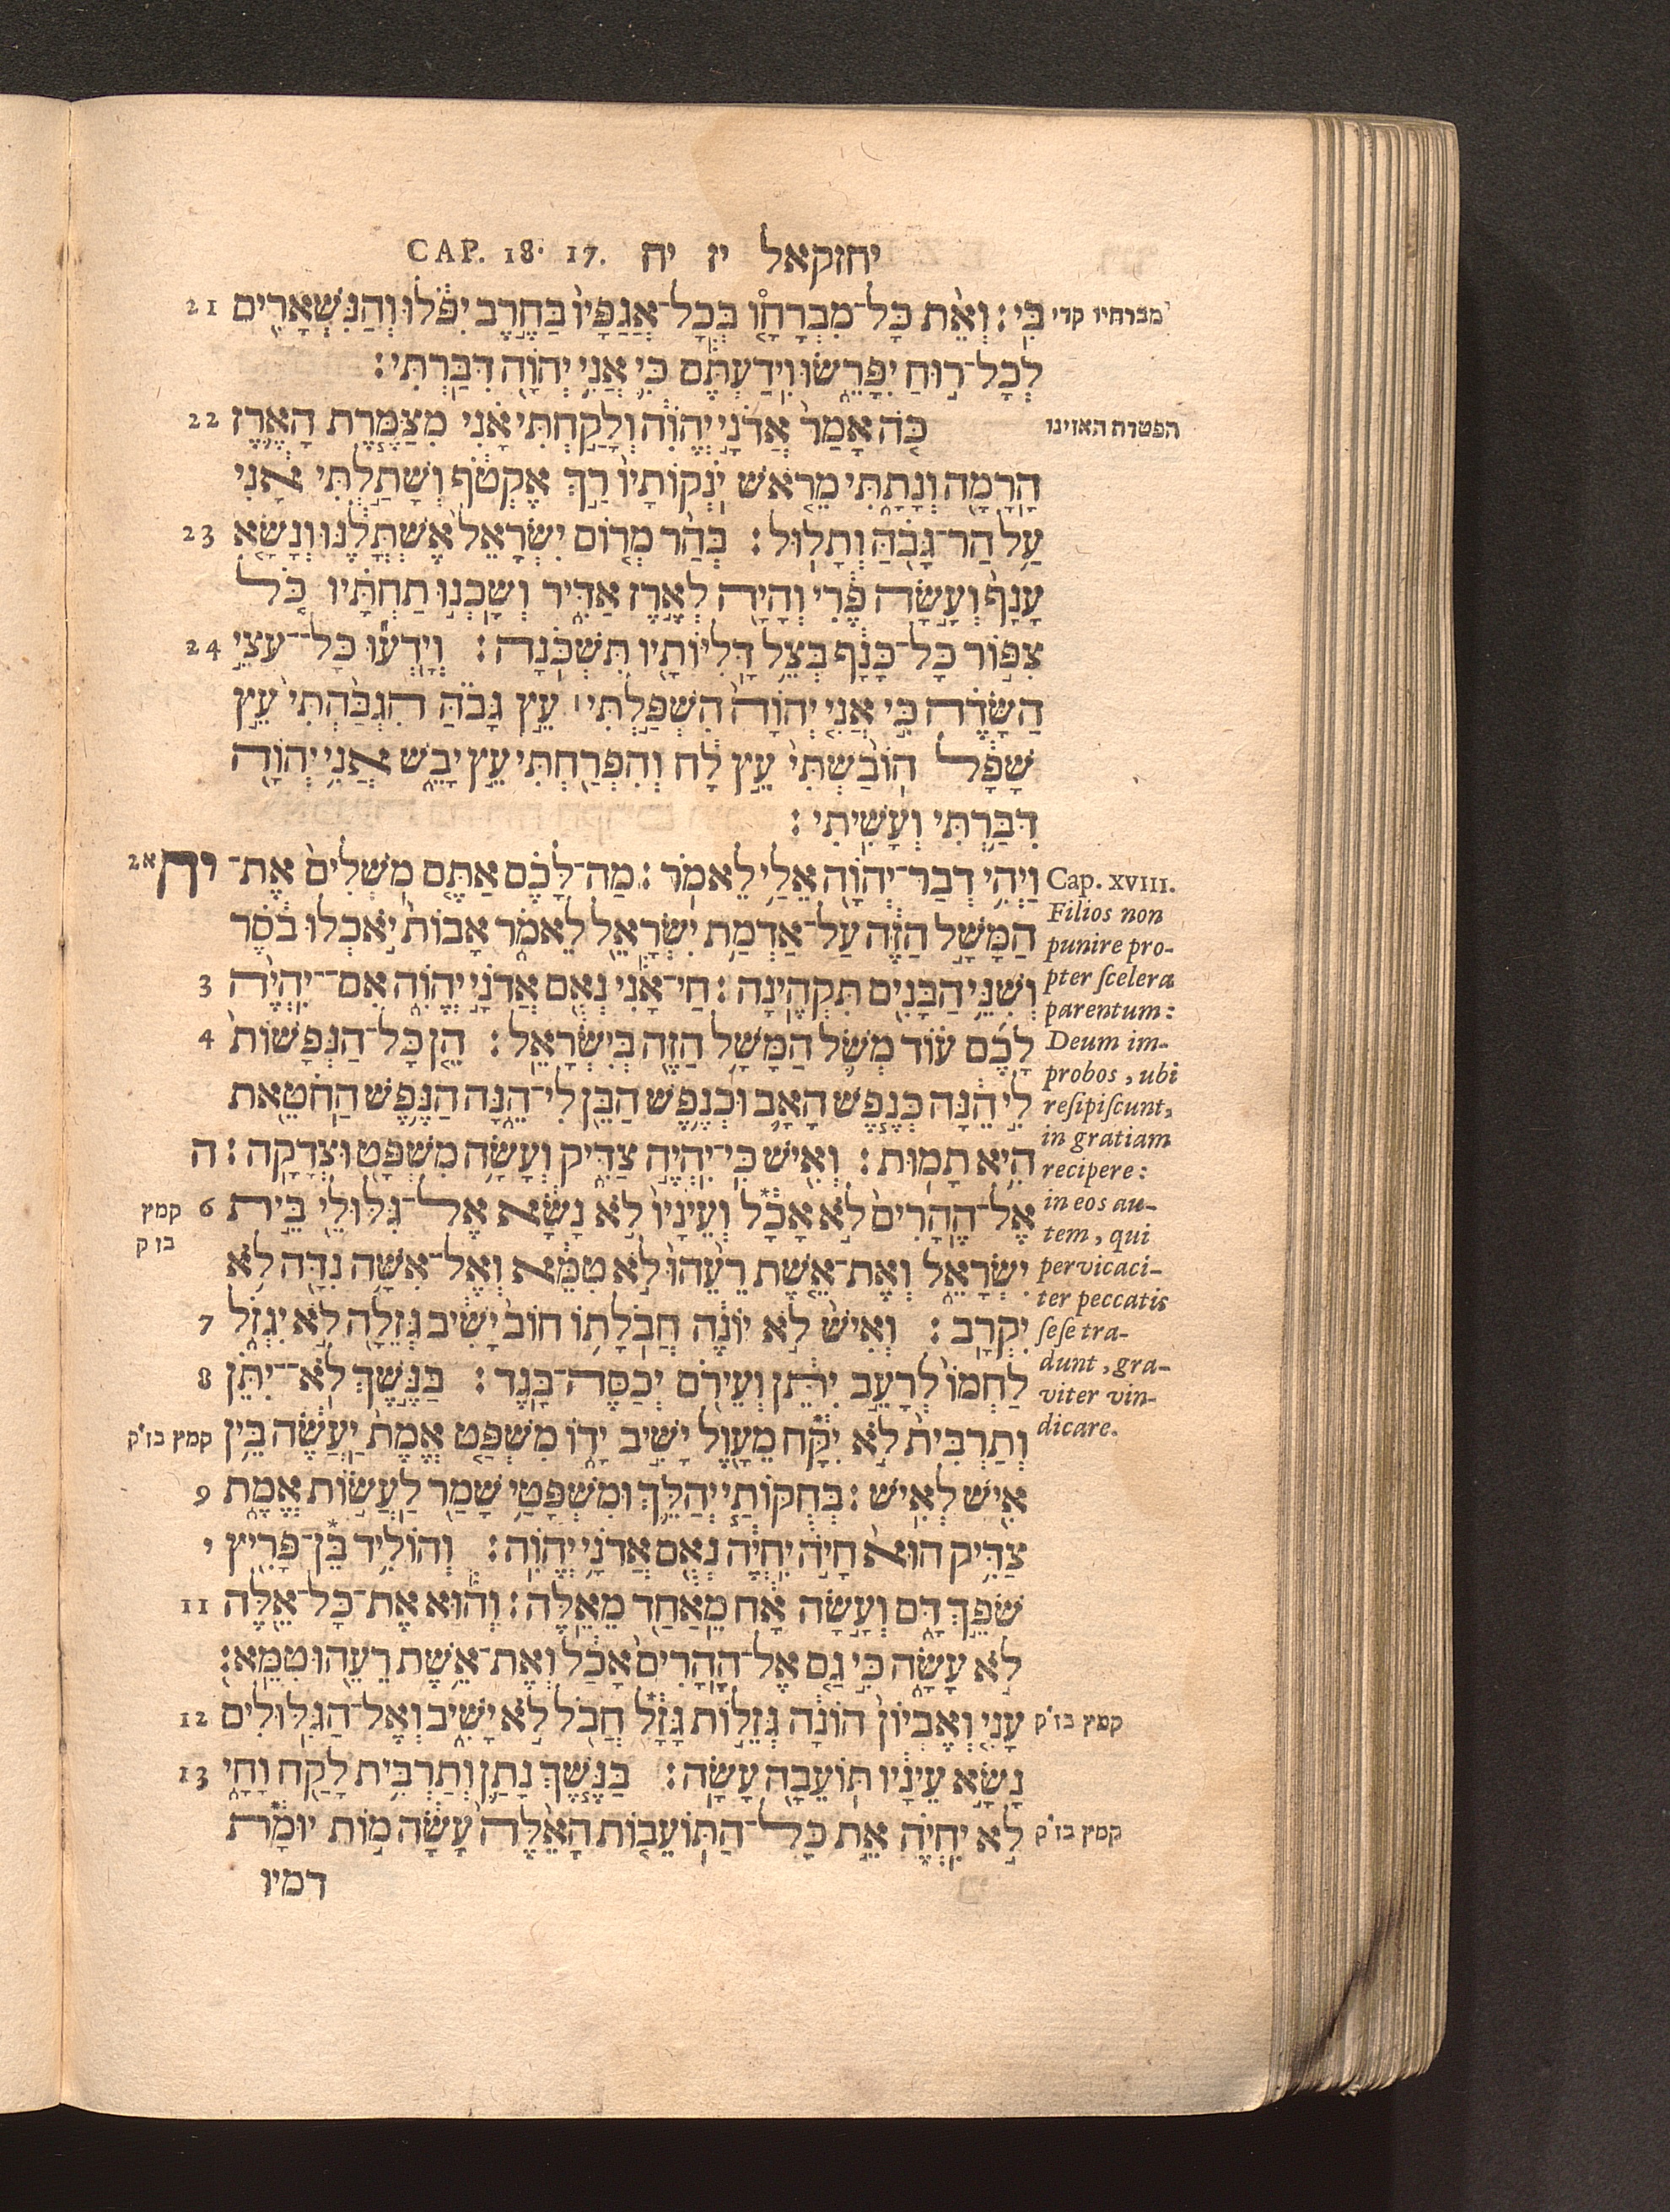 יחזקאל יז יח CAP. 18. 17.
בִּי׃ וְאֵת כָּל־מִבְרָחָו בְּכָל־אֲגַפָּיו בַּחֶרֶב יִפֹּלוּ וְהַנִּשְׁאָרִים 21
מברחיו קרי
לְכָל־רוּחַ יִפָּרֵשׂוּ וִידַעְתֶּם כִּי אֲנִי יְהוָֹה דִּבַּרְתִּי׃
הפטרת האזינו
כֹּה אָמַר אֲדֹנָי יֱהֹוִה וְלָקַחְתִּי אָנִי מִצַּמֶּרֶת הָאֶרֶז 22
הָרָמָה וְנָתָתִּי מֵרֹאשׁ יֹנְקוֹתָיו רַךְ אֶקְטֹף וְשָׁתַלְתִּי אָנִי
עַל הַר־גָּבֹהַּ וְתָלוּל׃ בְּהַר מְרוֹם יִשְׂרָאֵל אֶשְׁתֳּלֶנּוּ וְנָשָׂא 23
עָנָף וְעָשָׂה פֶרִי וְהָיָה לְאֶרֶז אַדִּיר וְשָׁכְנוּ תַחְתָּיו כֹּל
צִפּוֹר כָּל־כָּנָף בְּצֵל דָּלִיּוֹתָיו תִּשְׁכֹּנָּה׃ וְיָדְעוּ כָּל־עֲצֵי 24
הַשָּׂדֶה כִּי אֲנִי יְהוָֹה הִשְׁפַּלְתִּי ׀ עֵץ גָּבֹהַּ הִגְבַּהְתִּי עֵץ
שָׁפָל הוֹבַשְׁתִּי עֵץ לָח וְהִפְרַחְתִּי עֵץ יָבֵשׁ אֲנִי יְהוָֹה
דִּבַּרְתִּי וְעָשִׂיתִי׃
Cap. XVIII.
וַיְהִי דְבַר־יְהוָֹה אֵלַי לֵאמֹר׃ מַה־לָּכֶם אַתֶּם מֹשְׁלִים אֶת־ יח א2
הַמָּשָׁל הַזֶּה עַל־אַדְמַת יִשְׂרָאֵל לֵאמֹר אָבוֹת יֹאכְלוּ בֹסֶר
וְשִׁנֵּי הַבָּנִים תִּקְהֶינָה׃ חַי־אָנִי נְאֻם אֲדֹנָי יֱהֹוִה אִם־יִהְיֶה 3
לָכֶם עוֹד מְשֹׁל הַמָּשָׁל הַזֶּה בְּיִשְׂרָאֵל׃ הֵן כָּל־הַנְּפָשׁוֹת 4
לִי הֵנָּה כְּנֶפֶשׁ הָאָב וּכְנֶפֶשׁ הַבֵּן לִי־הֵנָּה הַנֶּפֶשׁ הַחֹטֵאת
הִיא תָמוּת׃ וְאִישׁ כִּי־יִהְיֶה צַדִּיק וְעָשָׂה מִשְׁפָּט וּצְדָקָה׃ ה
אֶל־הֶהָרִים לֹא אָכָל* וְעֵינָיו לֹא נָשָׂא אֶל־גִּלּוּלֵי בֵּית 6
קמץ
בז ק
יִשְׂרָאֵל וְאֶת־אֵשֶׁת רֵעֵהוּ לֹא טִמֵּא וְאֶל־אִשָּׁה נִדָּה לֹא
יִקְרָב׃ וְאִישׁ לֹא יוֹנֶה חֲבֹלָתוֹ חוֹב יָשִׁיב גְּזֵלָה לֹא יִגְזֹל 7
לַחְמוֹ לְרָעֵב יִתֵּן וְעֵירֹם יְכַסֶּה־בָּגֶד׃ בַּנֶּשֶׁךְ לֹא־יִתֵּן 8
וְתַרְבִּית לֹא יִקָּח* מֵעָוֶל יָשִׁיב יָדוֹ מִשְׁפַּט אֱמֶת יַעֲשֶׂה בֵּין
קמץ בז״ק
אִישׁ לְאִישׁ׃ בְּחֻקּוֹתַי יְהַלֵּךְ וּמִשְׁפָּטַי שָׁמַר לַעֲשׂוֹת אֱמֶת 9
צַדִּיק הוּא חָיֹה יִחְיֶה נְאֻם אֲדֹנָי יֱהֹוִה׃ וְהוֹלִיד בֵּן*־פָּרִיץ י
שֹׁפֵךְ דָּם וְעָשָׂה אָח מֵאַחַד מֵאֵלֶּה׃ וְהוּא אֶת־כָּל־אֵלֶּה 11
לֹא עָשָׂה כִּי גַם אֶל־הֶהָרִים אָכַל וְאֶת־אֵשֶׁת רֵעֵהוּ טִמֵּא׃
עָנִי וְאֶבְיוֹן הוֹנָה גְּזֵלוֹת גָּזָל* חֲבֹל לֹא יָשִׁיב וְאֶל־הַגִּלּוּלִים 12
קמץ בז״ק
נָשָׂא עֵינָיו תּוֹעֵבָה עָשָׂה׃ בַּנֶּשֶׁךְ נָתַן וְתַרְבִּית לָקַח וָחָי 13
לֹא יִחְיֶה אֵת כָּל־הַתּוֹעֵבוֹת הָאֵלֶּה עָשָׂה מוֹת יוּמָת*
קמץ בז״ק
דמיו
Filios non
punire pro-
pter ſcelera
parentum:
Deum im-
probos, ubi
reſipiſcunt,
in gratiam
recipere:
in eos au-
tem, qui
pervicaci-
ter peccatis
ſeſe tra-
dunt, gra-
viter vin-
dicare.